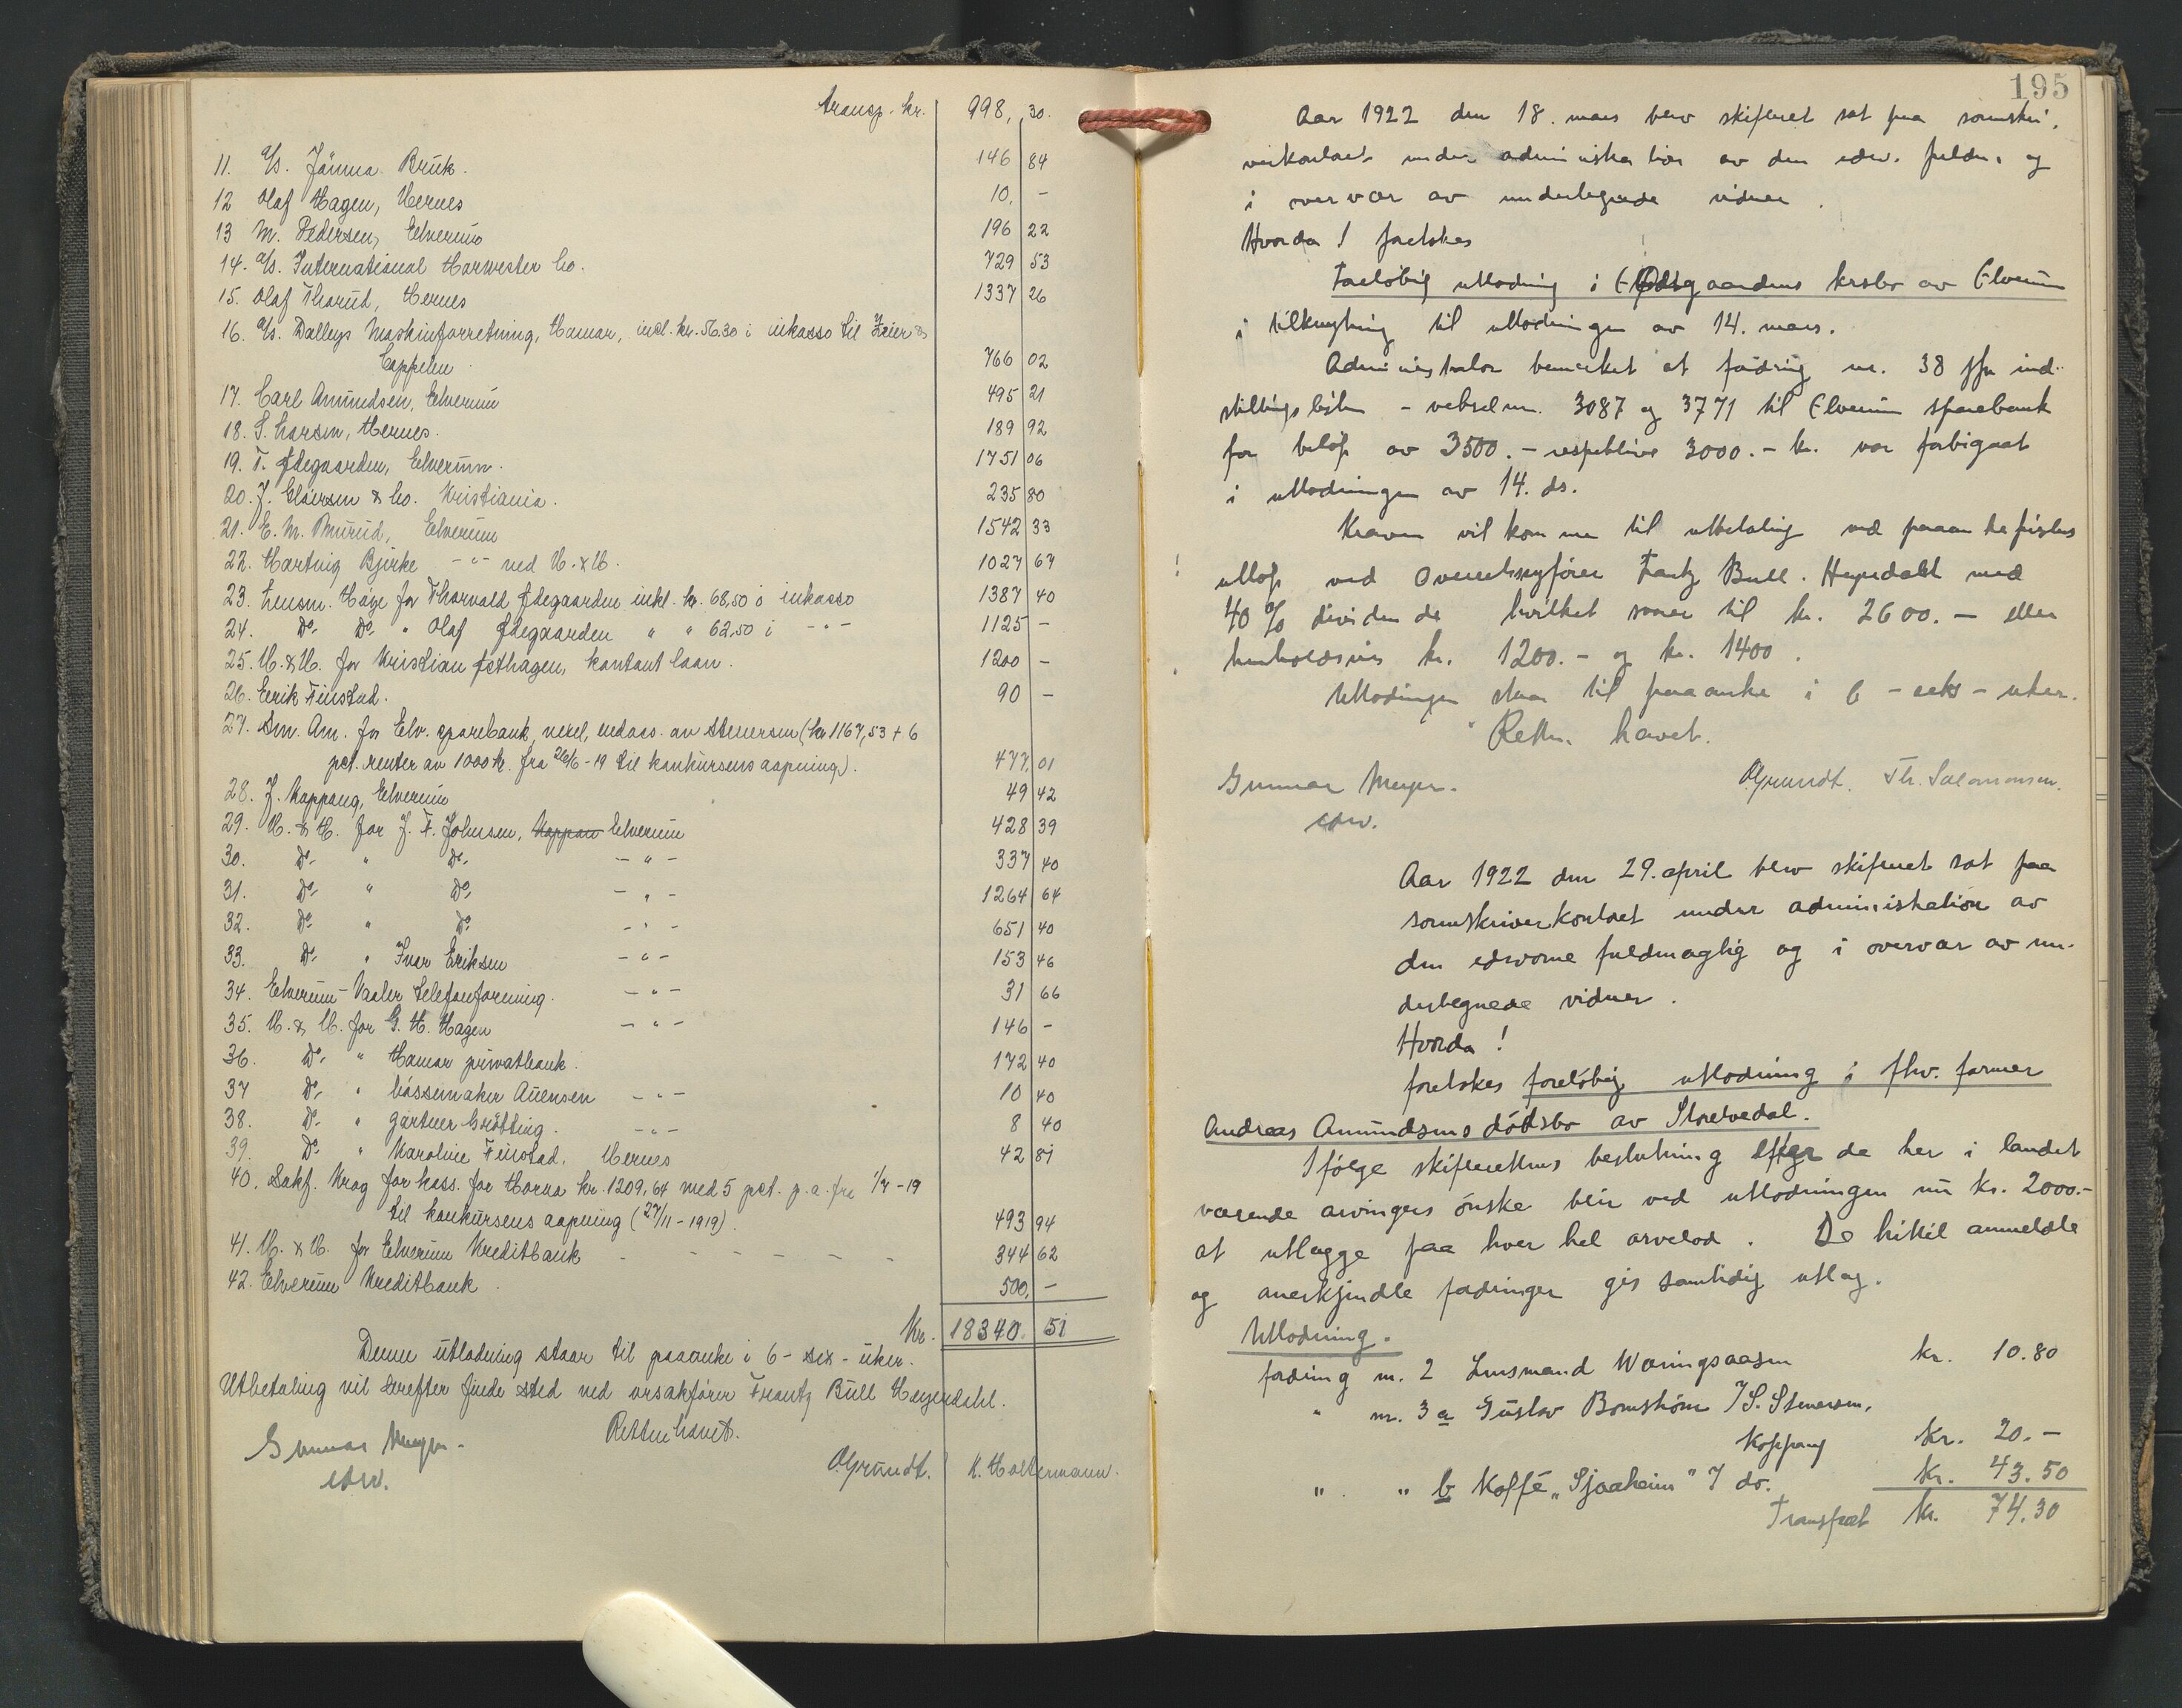 transp. kr. 998, 30.
11. A/S. Jömna Bruk. 146 84
12 Olaf Hagen, Hernes 10, -
13 M. Pedersen, Elverum 196 22
14. A/S. International Harwester Co. 729 53
15. Olaf Thorud, Hernes 1337 26
16. A/S. Dallugs Maskinforretning, Hamar, incl. kr. 56.30 i inkasso til Heier &
Cappelen 766 02
17. Carl Amundsen, Elverum 495 21
18. S. Larsen, Hernes. 189 92
19. T. Ødegaarden, Elverum. 1751 06
20. J. Clausen & Co. Kristiania. 235 80
21. E. M. Burud, Elverum 1542 33
22. Hartvig Bjerke -"- ved U. & U. 1027 67
23. Lensm. Høye for Thorvald Ødegaarden inkl. kr. 68,50 i inkasso 1387 40
24. Do. Do. " Olaf Ødegaarden " " 62,50 i -"- 1125 -
25. U. & U. for Kristian Østhagen, kontant laan. 1200 -
26. Eerik Finstad. 90 -
27. Sm. Am. for Elv. sparebank, vexel, endoss. av Stenersen (kr 1167,53 + 6
pct. renter av 1000 kr. fra 26/6-19 til konkursens aapning). 477, 01
28. J. Koppang, Elverum 49 42
29. U. & U. for J. F. Johnsen, Koppan Elverum 428 39
30. Do. " Do. -"- 337 40
31. Do. " Do. -"- 1264 64
32. Do. " Do. -"- 651 40
33. Do. " Ivar Eriksen -"- 153 46
34. Elverum-Vaaler telefonforening. -"- 31 66
35. U. & U. for G. H. Hagen -"- 146 -
36. Do. " Hamar privatbank. 172 40
37 Do. " bössemaker Auensen -"- 10 40
38. Do. " gartner Grötting. -"- 8 40
39. Do. " Karoline Finstad. Hernes 42 81
40. Sakf. Krog for kass. for Horna kr. 1209,64 med 5 pct. p.a. fra 1/7-19
til konkursens aapning (27/11-1919). 493 94
41. U. & U. for Elverum Kreditbank - - - - - 344 62
42. Elverum Kreditbank. 500, -
Kr. 18340. 51
Denne utlodning staar til paaanke i 6 - sex - uker.
Utbetaling vil derefter finde sted ved orsakfører Frantz Bull Heyerdahl.
Retten hævet.
Gunnar Meyer.
edsv.
O. Grundt. K. Holtermann.
195
Aar 1922 den 18. mars blev skifteret sat paa sorenskri-
verkontoret under administration av den edsv. fuldm. og
i overvær av undertegnede vidner.
Hvorda ! foretokes
Foreløbig utlodning i E Ødegaardens krsbo av Elverum
i tilknytning til utlodningen av 14. mars.
Administrator bemerket at fodring nr. 38 ifn ind-
stillingslisten - veksel nr. 3087 og 3771 til Elverum sparebank
for beløp av 3500.- respektive 3000.- kr. var forbigaat
i utlodningen av 14. ds.
Kraven vil komme til utbetaling ved paaankefristens
utløp ved Overretssagfører Frantz Bull Heyerdahl med
40 % dividende hvilket svarer til kr. 2600.- eller
henholdsvis kr. 1200.- og kr. 1400.
Utlodningen staar til paaanke i 6 - seks - uker.
Retten hævet.
Gunnar Meyer.
edsv.
O. Grundt. Th. Salomonsen.
Aar 1922 den 29. april blev skifteret sat paa
sorenskriverkontoret under administration av
den edsvorne fuldmægtig og i overvær av un-
dertegnede vidner.
Hvorda !
foretokes foreløbig utlodning i fhv. farmer
Andreas Amundsens dödsbo av Storelvedal.
Ifølge skifterettens beslutning efter de her i landet
værende arvingers ønske blir ved utlodningen nu kr. 2000.-
at utlægge paa hver hel arvelod. De hittil anmeldte
og anerkjendte fodringer gis samtidig utlæg.
Utlodning.
fodring nr. 2 Lensmand Woringsaasen kr. 10.80
" nr. 3 a Gustav Bomström / S. Stenersen,
Koppang Kr. 20.-
" " b Kaffé "Sjøaheim" / do. Kr. 43.50
Transport kr. 74.30